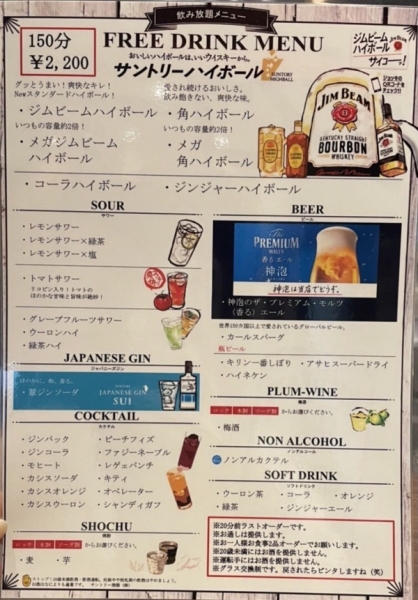 飲み放題メニュー
150分
¥2,200
FREE DRINK MENU
おいしいハイボールは、いいウイスキーから。
サントリーハイボール
SUNTORY
HIGHBALL
ジムビーム
ハイボール
サイコーっ!
グッとうまい!爽快なキレ!
Newスタンダードハイボール!
・ジムビームハイボール
いつもの容量約2倍!
・メガジムビーム
ハイボール
愛され続けるおいしさ。
飲み飽きない、爽快な味。
・角ハイボール
いつもの容量約2倍!
・メガ
角ハイボール
JIM BEAM
KENTUCKY STRAIGHT
BOURBON
WHISKEY
・コーラハイボール
・ジンジャーハイボール
SOUR
サワー
・レモンサワー
・レモンサワー×緑茶
・レモンサワー×塩
・トマトサワー
リコピン入り!トマトの
ほのかな甘味と旨味が絶妙!
・グレープフルーツサワー
・ウーロンハイ
・緑茶ハイ
JAPANESE GIN
ジャパニーズジン
・翠ジンソーダ
JAPANESE GIN
SUI
COCKTAIL
カクテル
・ジンバック
・ジンコーラ
・モヒート
・カシスソーダ
・カシスオレンジ
・カシスウーロン
・ピーチフィズ
・ファジーネーブル
・レゲエパンチ
・キティ
・オペレーター
・シャンディガフ
SHOCHU
焼酎
ロック 水割 ソーダ割 からお選びください。
・麦 ・芋
BEER
ビール
The
PREMIUM
MALT'S
香るエール
神泡
神泡は当店でどうぞ。
・神泡のザ・プレミアム・モルツ
〈香る〉エール
世界150カ国以上で愛されているグローバルビール。
・カールスバーグ
瓶ビール
・キリン一番しぼり ・アサヒスーパードライ
・ハイネケン
PLUM-WINE
梅酒
ロック 水割 ソーダ割 からお選びください。
・梅酒
NON ALCOHOL
ノンアルコール
ノンアルカクテル
SOFT DRINK
ソフトドリンク
・ウーロン茶 ・コーラ ・オレンジ
・緑茶 ・ジンジャーエール
※20分前ラストオーダーです。
※お通しは提供します。
※お一人様お食事2品オーダーでお願いします。
※20歳未満にはお酒を提供しません。
※運転手にはお酒を提供しません。
※グラス交換制です。戻されたらピンタしますね(笑)